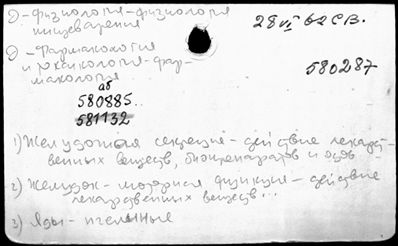 Э-физиология-физиология
пищеварения
28 VI 62 СВ.
Э-Фармакология
и токсикология-фар-
макология
580287
аб
580885..
581132
1) Желудочная секреция - действие лекарст-
венных веществ, биопрепаратов и ядов
2) Желудок - моторная функция - действие
лекарственных веществ...
3) Яды - пчелиные